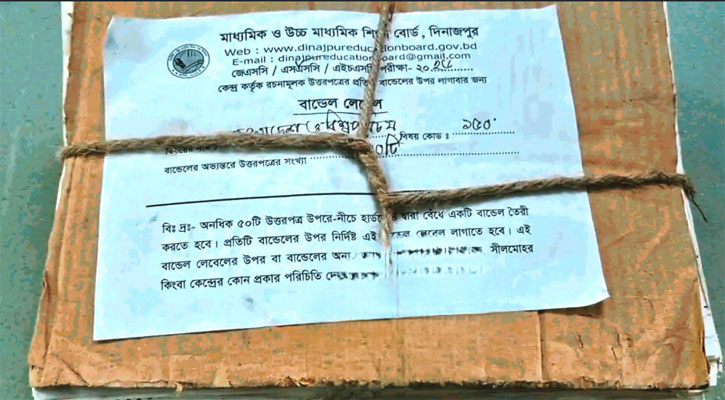 মাধ্যমিক ও উচ্চ মাধ্যমিক শিক্ষা বোর্ড, দিনাজপুর
Web : www.dinajpureducationboard.gov.bd
E-mail : dinajpureducationboard@gmail.com
জেএসসি / এসএসসি / এইচএসসি পরীক্ষা- ২০
কেন্দ্র কর্তৃক রচনামূলক উত্তরপত্রের প্রতি বান্ডেলের উপর লাগাবার জন্য
বান্ডেল লেবেল
বিষয় কোড : ১৫০
বান্ডেলের অভ্যন্তরে উত্তরপত্রের সংখ্যা ০টি
বিঃ দ্রঃ- অনধিক ৫০টি উত্তরপত্র উপরে-নীচে দ্বারা বেঁধে একটি বান্ডেল তৈরী
করতে হবে। প্রতিটি বান্ডেলের উপর নির্দিষ্ট এই লেবেল লাগাতে হবে। এই
বান্ডেল লেবেলের উপর বা বান্ডেলের অন্য সীলমোহর
কিংবা কেন্দ্রের কোন প্রকার পরিচিতি